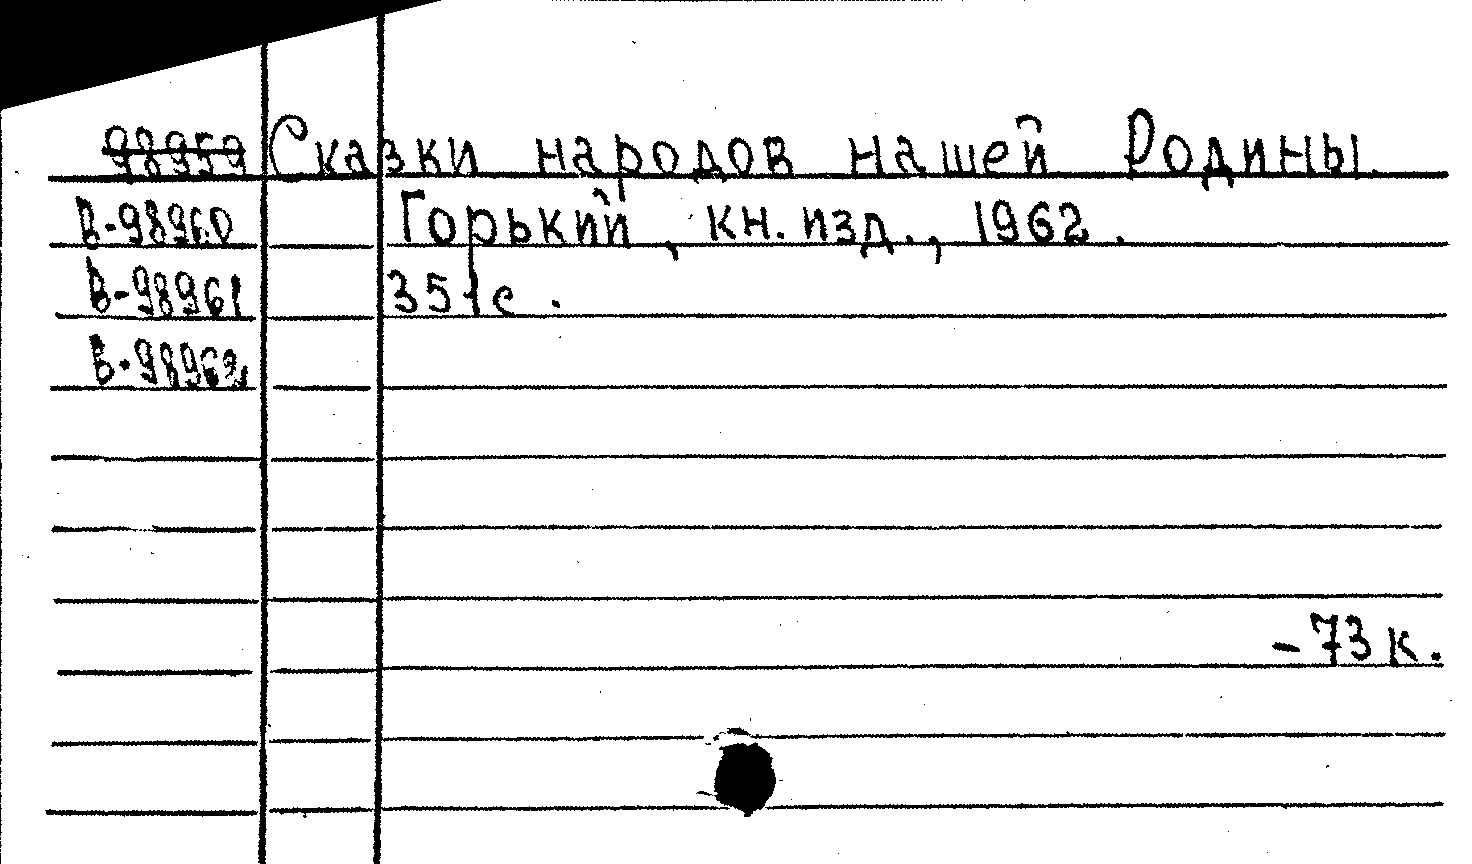 98959 Сказки народов нашей Родины.
В-98960 Горький, кн. изд., 1962.
В-98961 351с.
В-98962
-73 к.